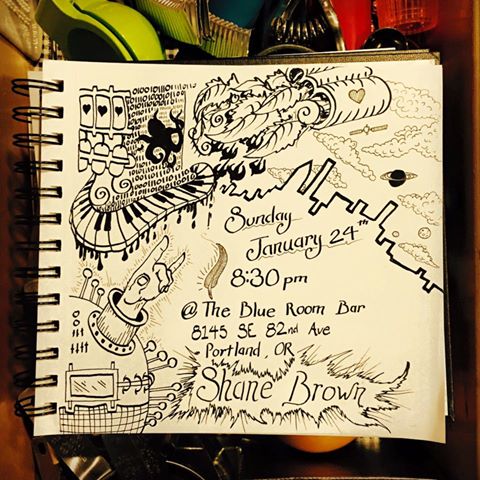 Sunday
January 24th
8:30 pm
@ The Blue Room Bar
8145 SE 82nd Ave
Portland, OR
Shane Brown